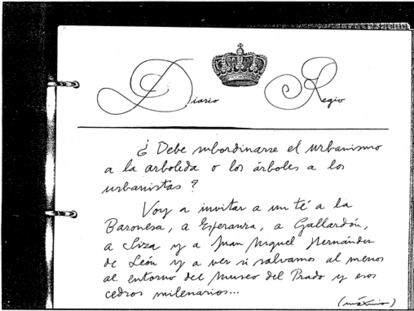 Diario Regio
¿Debe subordinarse el urbanismo
a la arboleda o los árboles a los
urbanistas?
Voy a invitar a un té a la
Baronesa, a Esperanza, a Gallardón,
a Siza y a Juan Miguel Hernández
de León y a ver si salvamos al menos
al entorno del Museo del Prado y esos
cedros milenarios...
(máximo)